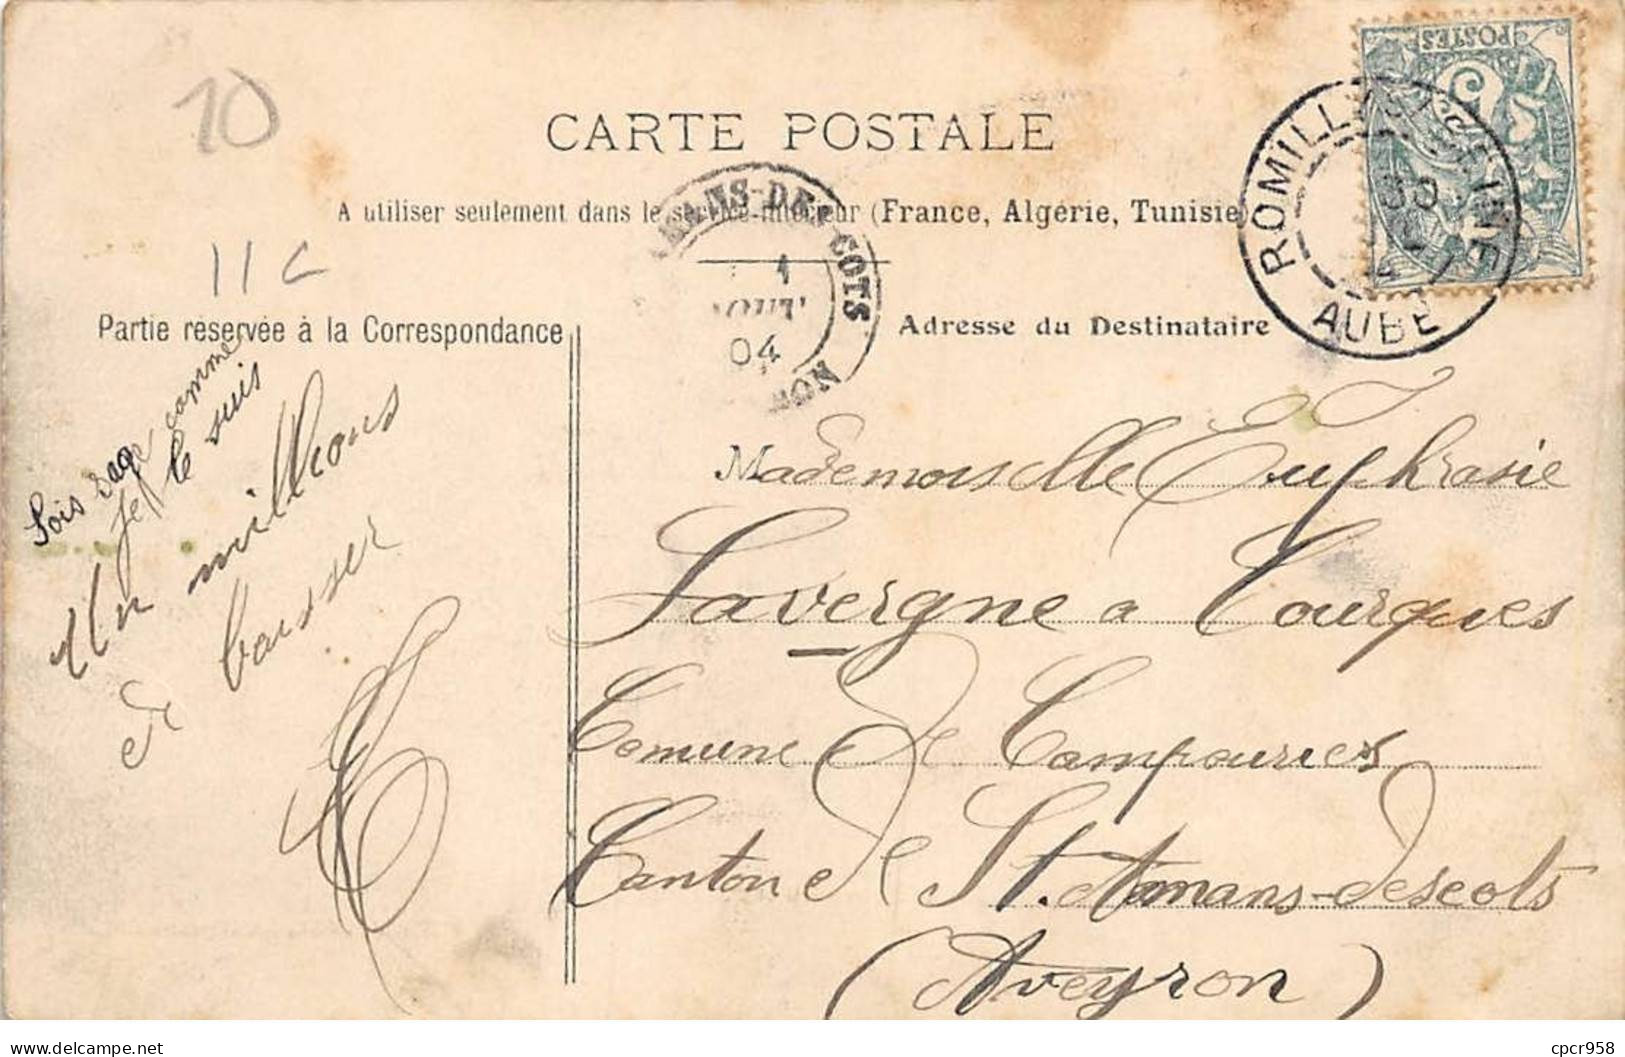 10
CARTE POSTALE
A utiliser seulement dans le service intérieur (France, Algérie, Tunisie)
11 c
Partie réservée à la Correspondance
Adresse du Destinataire
POSTES
ROMILLY-S-SEINE
30
AUBE
AMANS-DES-COTS
1
AOUT
04
Sois sage comme
je le suis
Un millions
de baisser
Mademoiselle Euphrasie
Lavergne a Tourques
Comune de Campouries
Canton de St. Amans-descots
(Aveyron)
delcampe.net
cpcr958